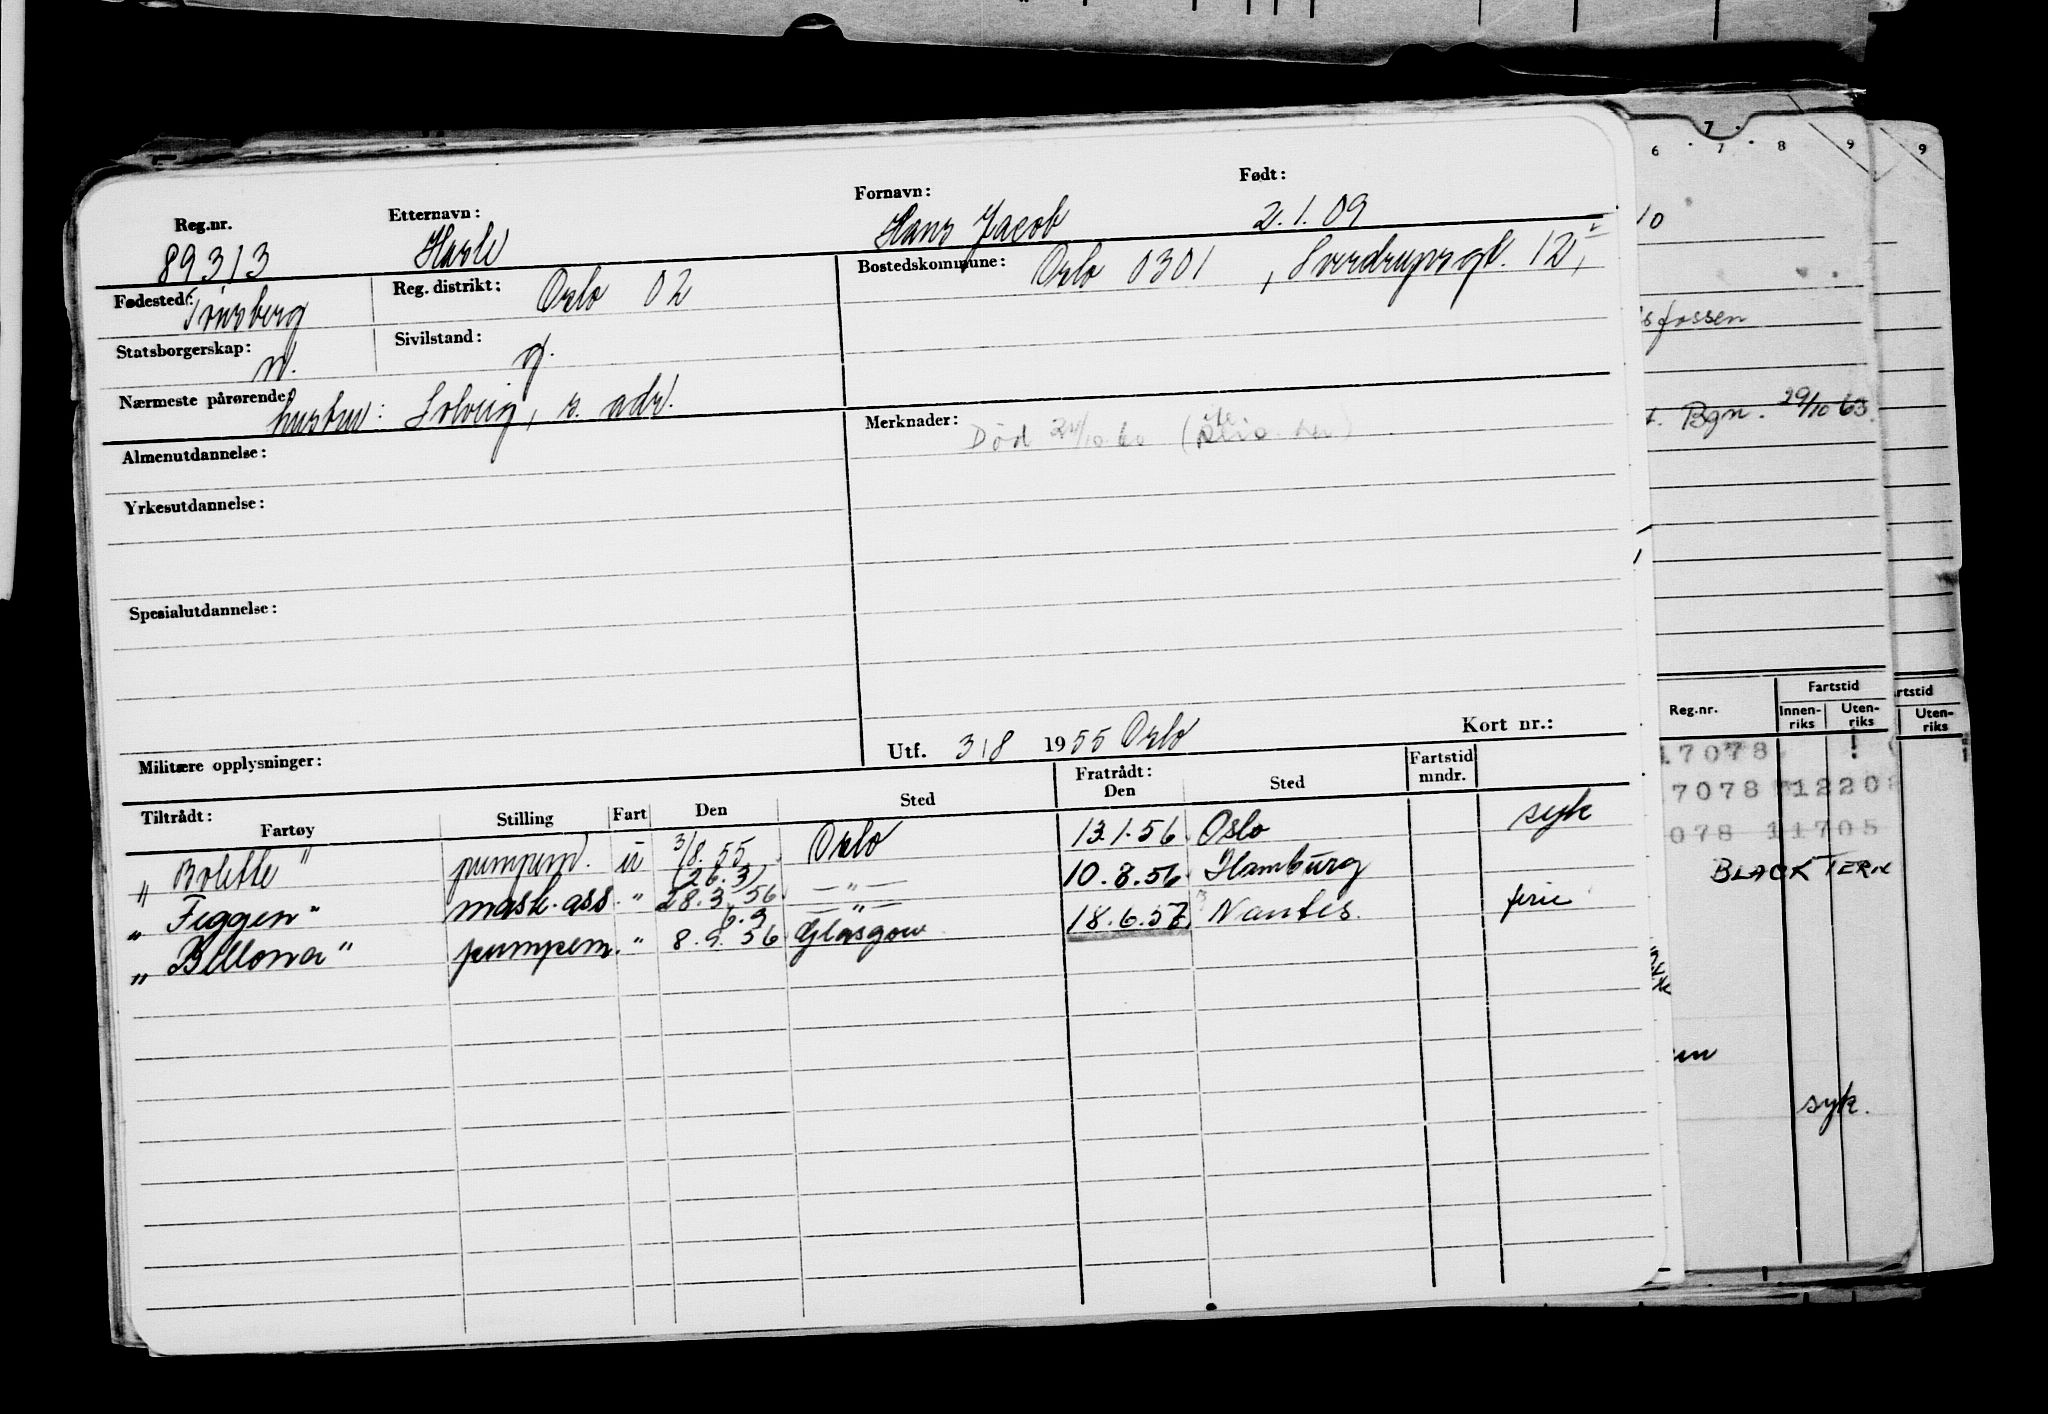 Reg.nr. Etternavn: Fornavn: Født:
89313 Hasle Hans Jacob 2.1.09
Fødested: Tønsberg Reg. distrikt: Oslo 02 Bostedskommune: Oslo 0301, Sverdrupsgt. 12,
Statsborgerskap: n. Sivilstand: g.
Nærmeste pårørende: hustru: Solveig, s. adr.
Almenutdannelse: Merknader: Død
Yrkesutdannelse:
Spesialutdannelse:
Militære opplysninger: Utf. 3/8 1955 Oslo Kort nr.:
Tiltrådt: Fratrådt: Fartstid
Fartøy Stilling Fart Den Sted Den Sted mndr.
"Bolette" pumpem. u 3/8.55 Oslo 13.1.56 Oslo syk
"Figgen" mask.ass. " (26.3) 28.3.56 —"— 10.8.56 Hamburg
"Bellona" pumpem. " 6.9 8.9.56 —"— Glasgow 18.6.57 Nantes. ferie
7
6 7 8 9
9
10
fossen
Bgn. 29/10 63
Reg.nr. Fartstid
Innen-riks Uten-riks
Uten-riks
17078
7078 1220
078 11705
BLACK TERN
syk.